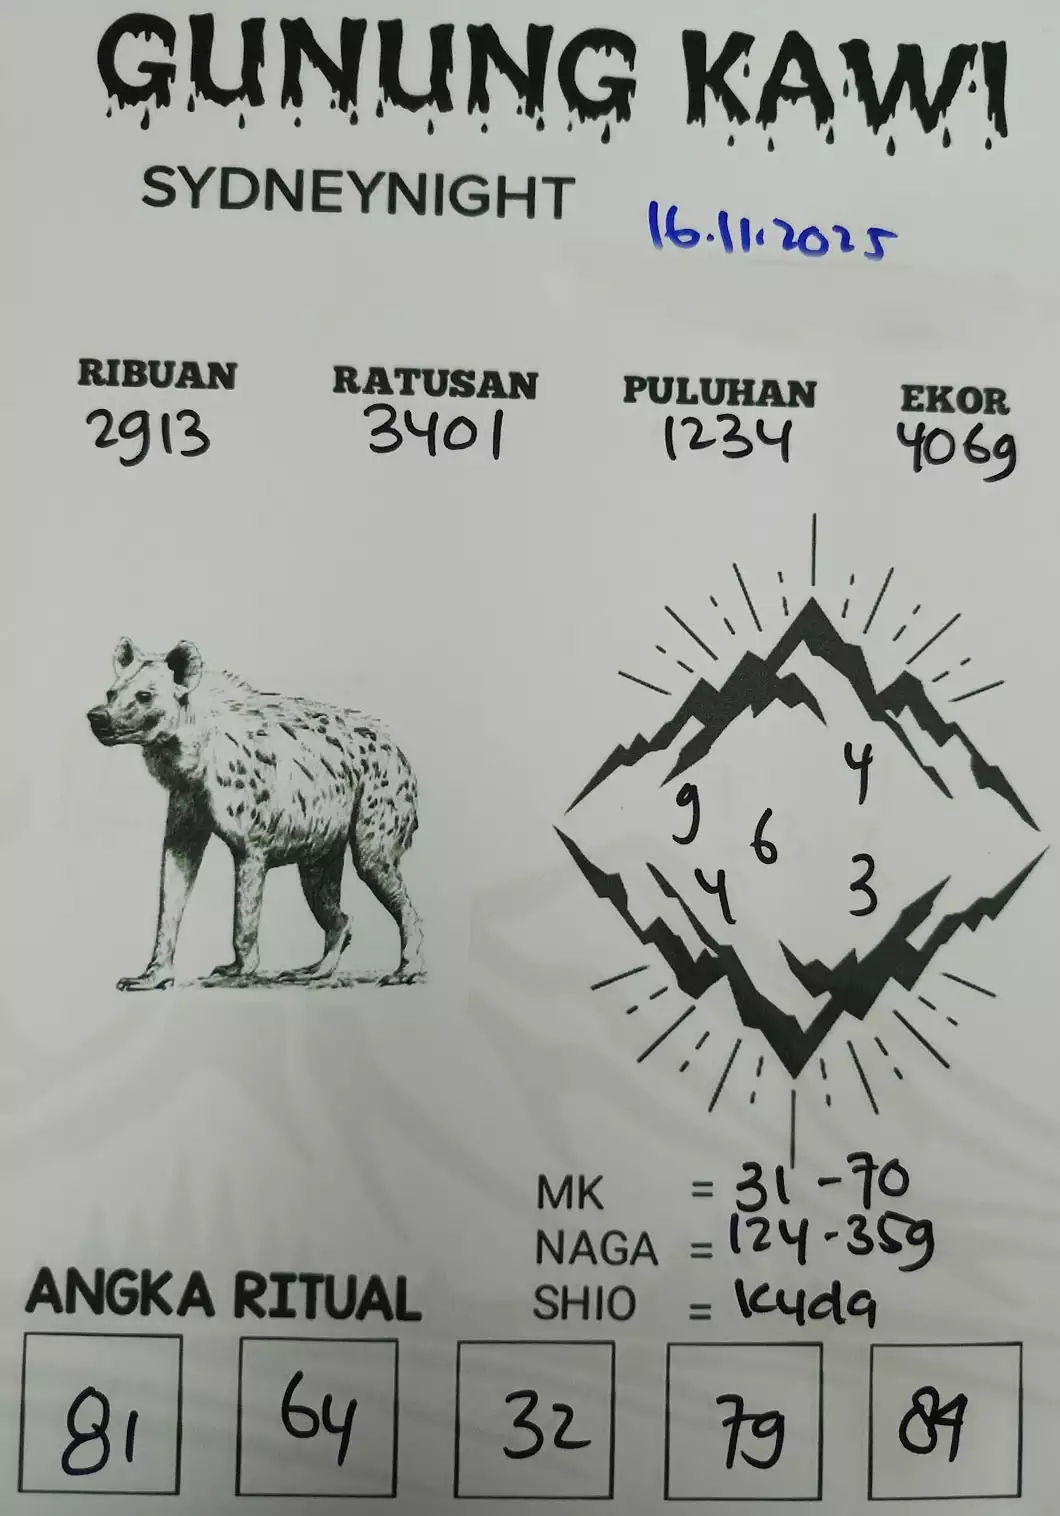 GUNUNG KAWI
SYDNEYNIGHT
16.11.2025
RIBUAN RATUSAN PULUHAN EKOR
2913 3401 1234 4069
4
9
6
4 3
MK = 31-70
NAGA = 124-359
SHIO = Kuda
ANGKA RITUAL
81 64 32 79 84